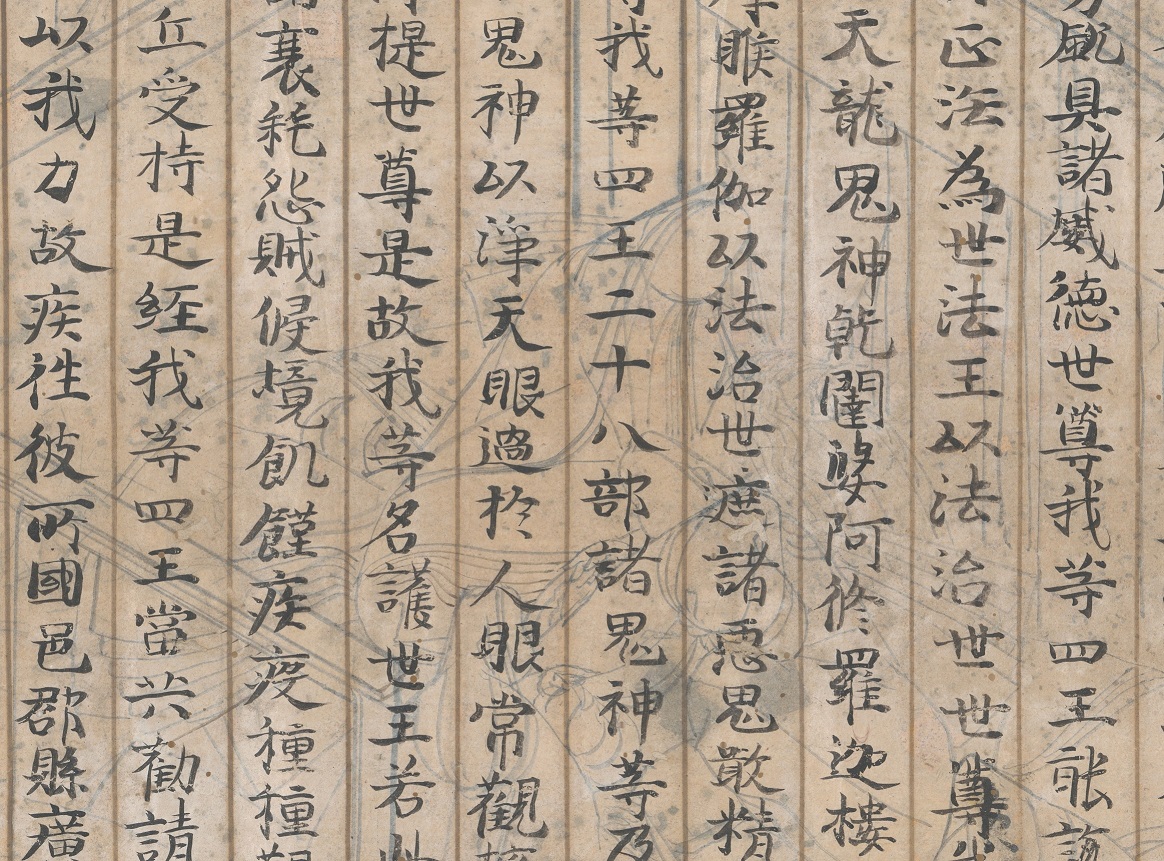 具諸威德世尊我等四王能說
正法為世法王以法治世世尊
天龍鬼神乾闥婆阿修羅迦樓
睺羅伽以法治世遮諸惡鬼噉精
我等四王二十八部諸鬼神等及
鬼神以淨天眼過於人眼常觀
提世尊是故我等名護世王若此
衰耗怨賊侵境飢饉疾疫種種
丘受持是經我等四王當共勸請
以我力故疾往彼所國邑郡縣廣